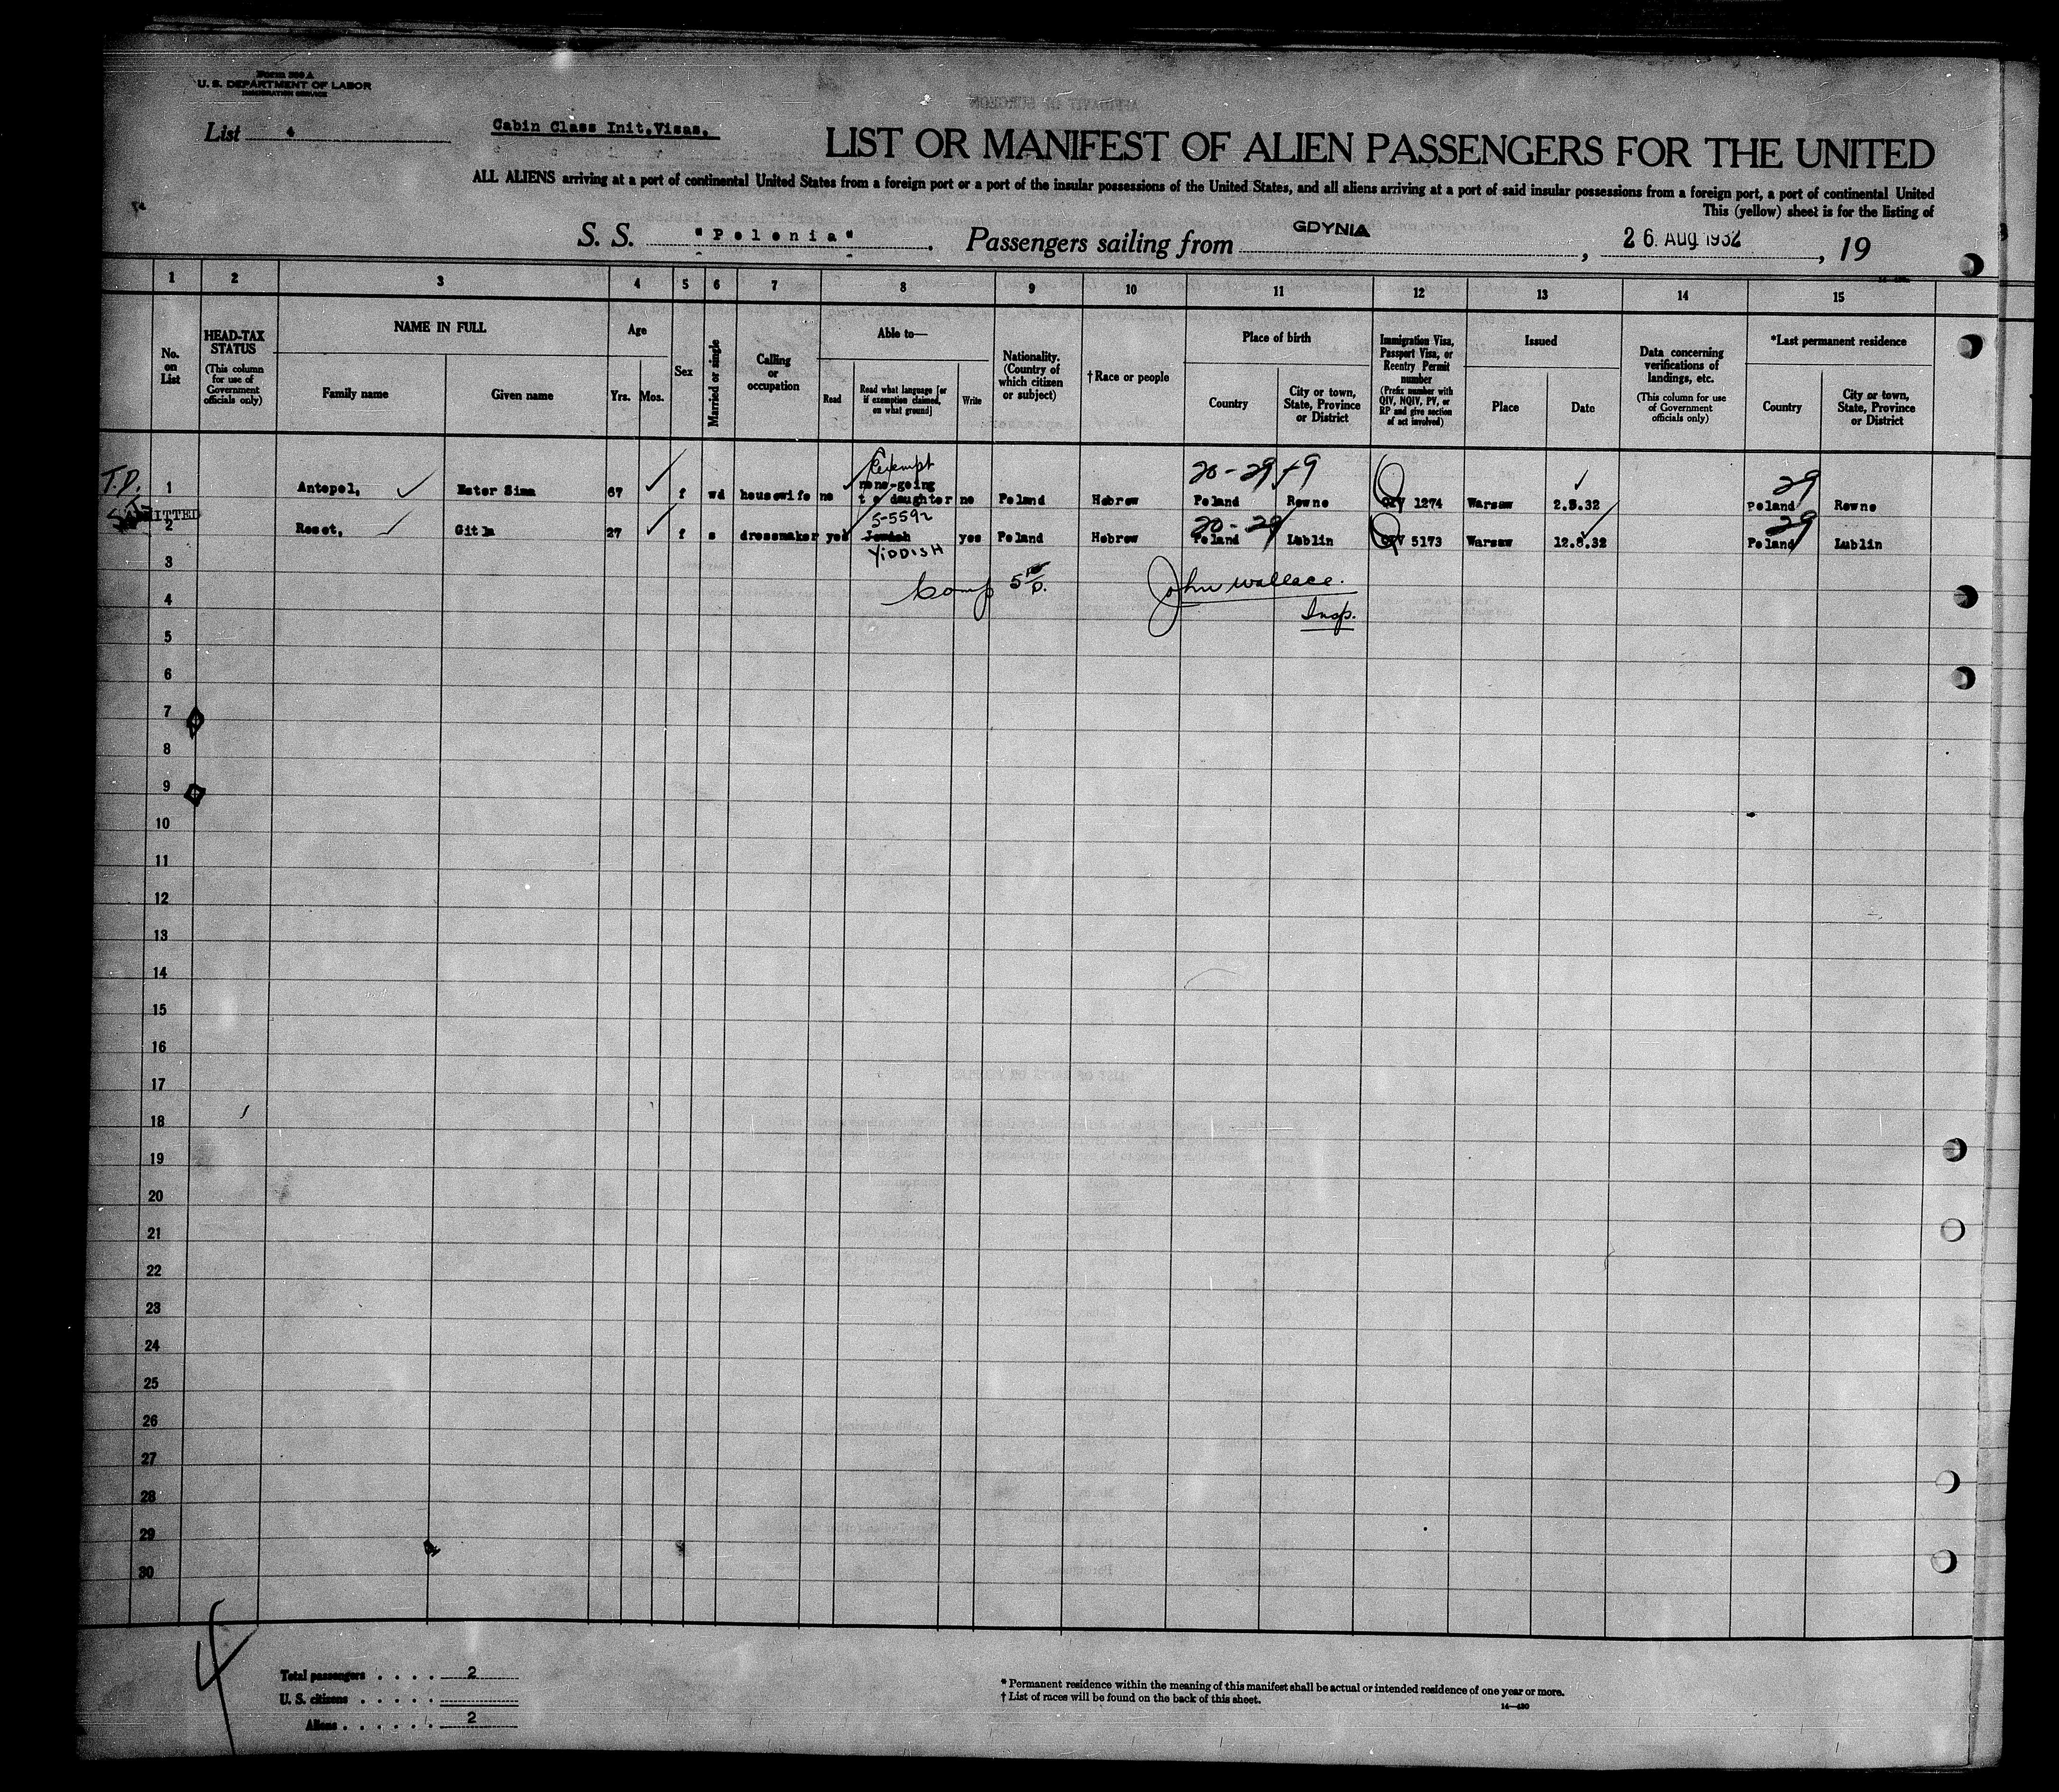 Form 500 A
U. S. DEPARTMENT OF LABOR
IMMIGRATION SERVICE
List 4
Cabin Class Init.Visas.
LIST OR MANIFEST OF ALIEN PASSENGERS FOR THE UNITED
ALL ALIENS arriving at a port of continental United States from a foreign port or a port of the insular possessions of the United States, and all aliens arriving at a port of said insular possessions from a foreign port, a port of continental United
This (yellow) sheet is for the listing of
S. S. "Polonia". Passengers sailing from GDYNIA, 26. Aug 1932, 19
1 2 3 4 5 6 7 8 9 10 11 12 13 14 15
No. on List
HEAD-TAX STATUS (This column for use of Government officials only)
NAME IN FULL
Family name
Given name
Age
Yrs. Mos.
Sex
Married or single
Calling or occupation
Able to—
Read
Read what language [or if exemption claimed, on what ground]
Write
Nationality. (Country of which citizen or subject)
†Race or people
Place of birth
Country
City or town, State, Province or District
Immigration Visa, Passport Visa, or Reentry Permit number (Prefix number with QIV, NQIV, PV, or RP and give section of act involved)
Issued
Place
Date
Data concerning verifications of landings, etc. (This column for use of Government officials only)
*Last permanent residence
Country
City or town, State, Province or District
T.D. Exempt 20-29 + 9 29
1 Antopol, Ester Sima 67 f wd housewife no none-going to daughter no Poland Hebrew Poland Rowne QIV 1274 Warsaw 2.8.32 Poland Rowne
ADMITTED 5-5592 20-29 29
2 Roset, Gitla 27 f s dressmaker yes Jewish yes Poland Hebrew Poland Lublin QIV 5173 Warsaw 12.8.32 Poland Lublin
YIDDISH
3
Comp John Wallace.
4
Insp.
5
6
7
8
9
10
11
12
13
14
15
16
17
18
19
20
21
22
23
24
25
26
27
28
29
30
4
Total passengers . . . . 2
U. S. citizens . . . . .
Aliens . . . . . . 2
* Permanent residence within the meaning of this manifest shall be actual or intended residence of one year or more.
† List of races will be found on the back of this sheet.
14—420